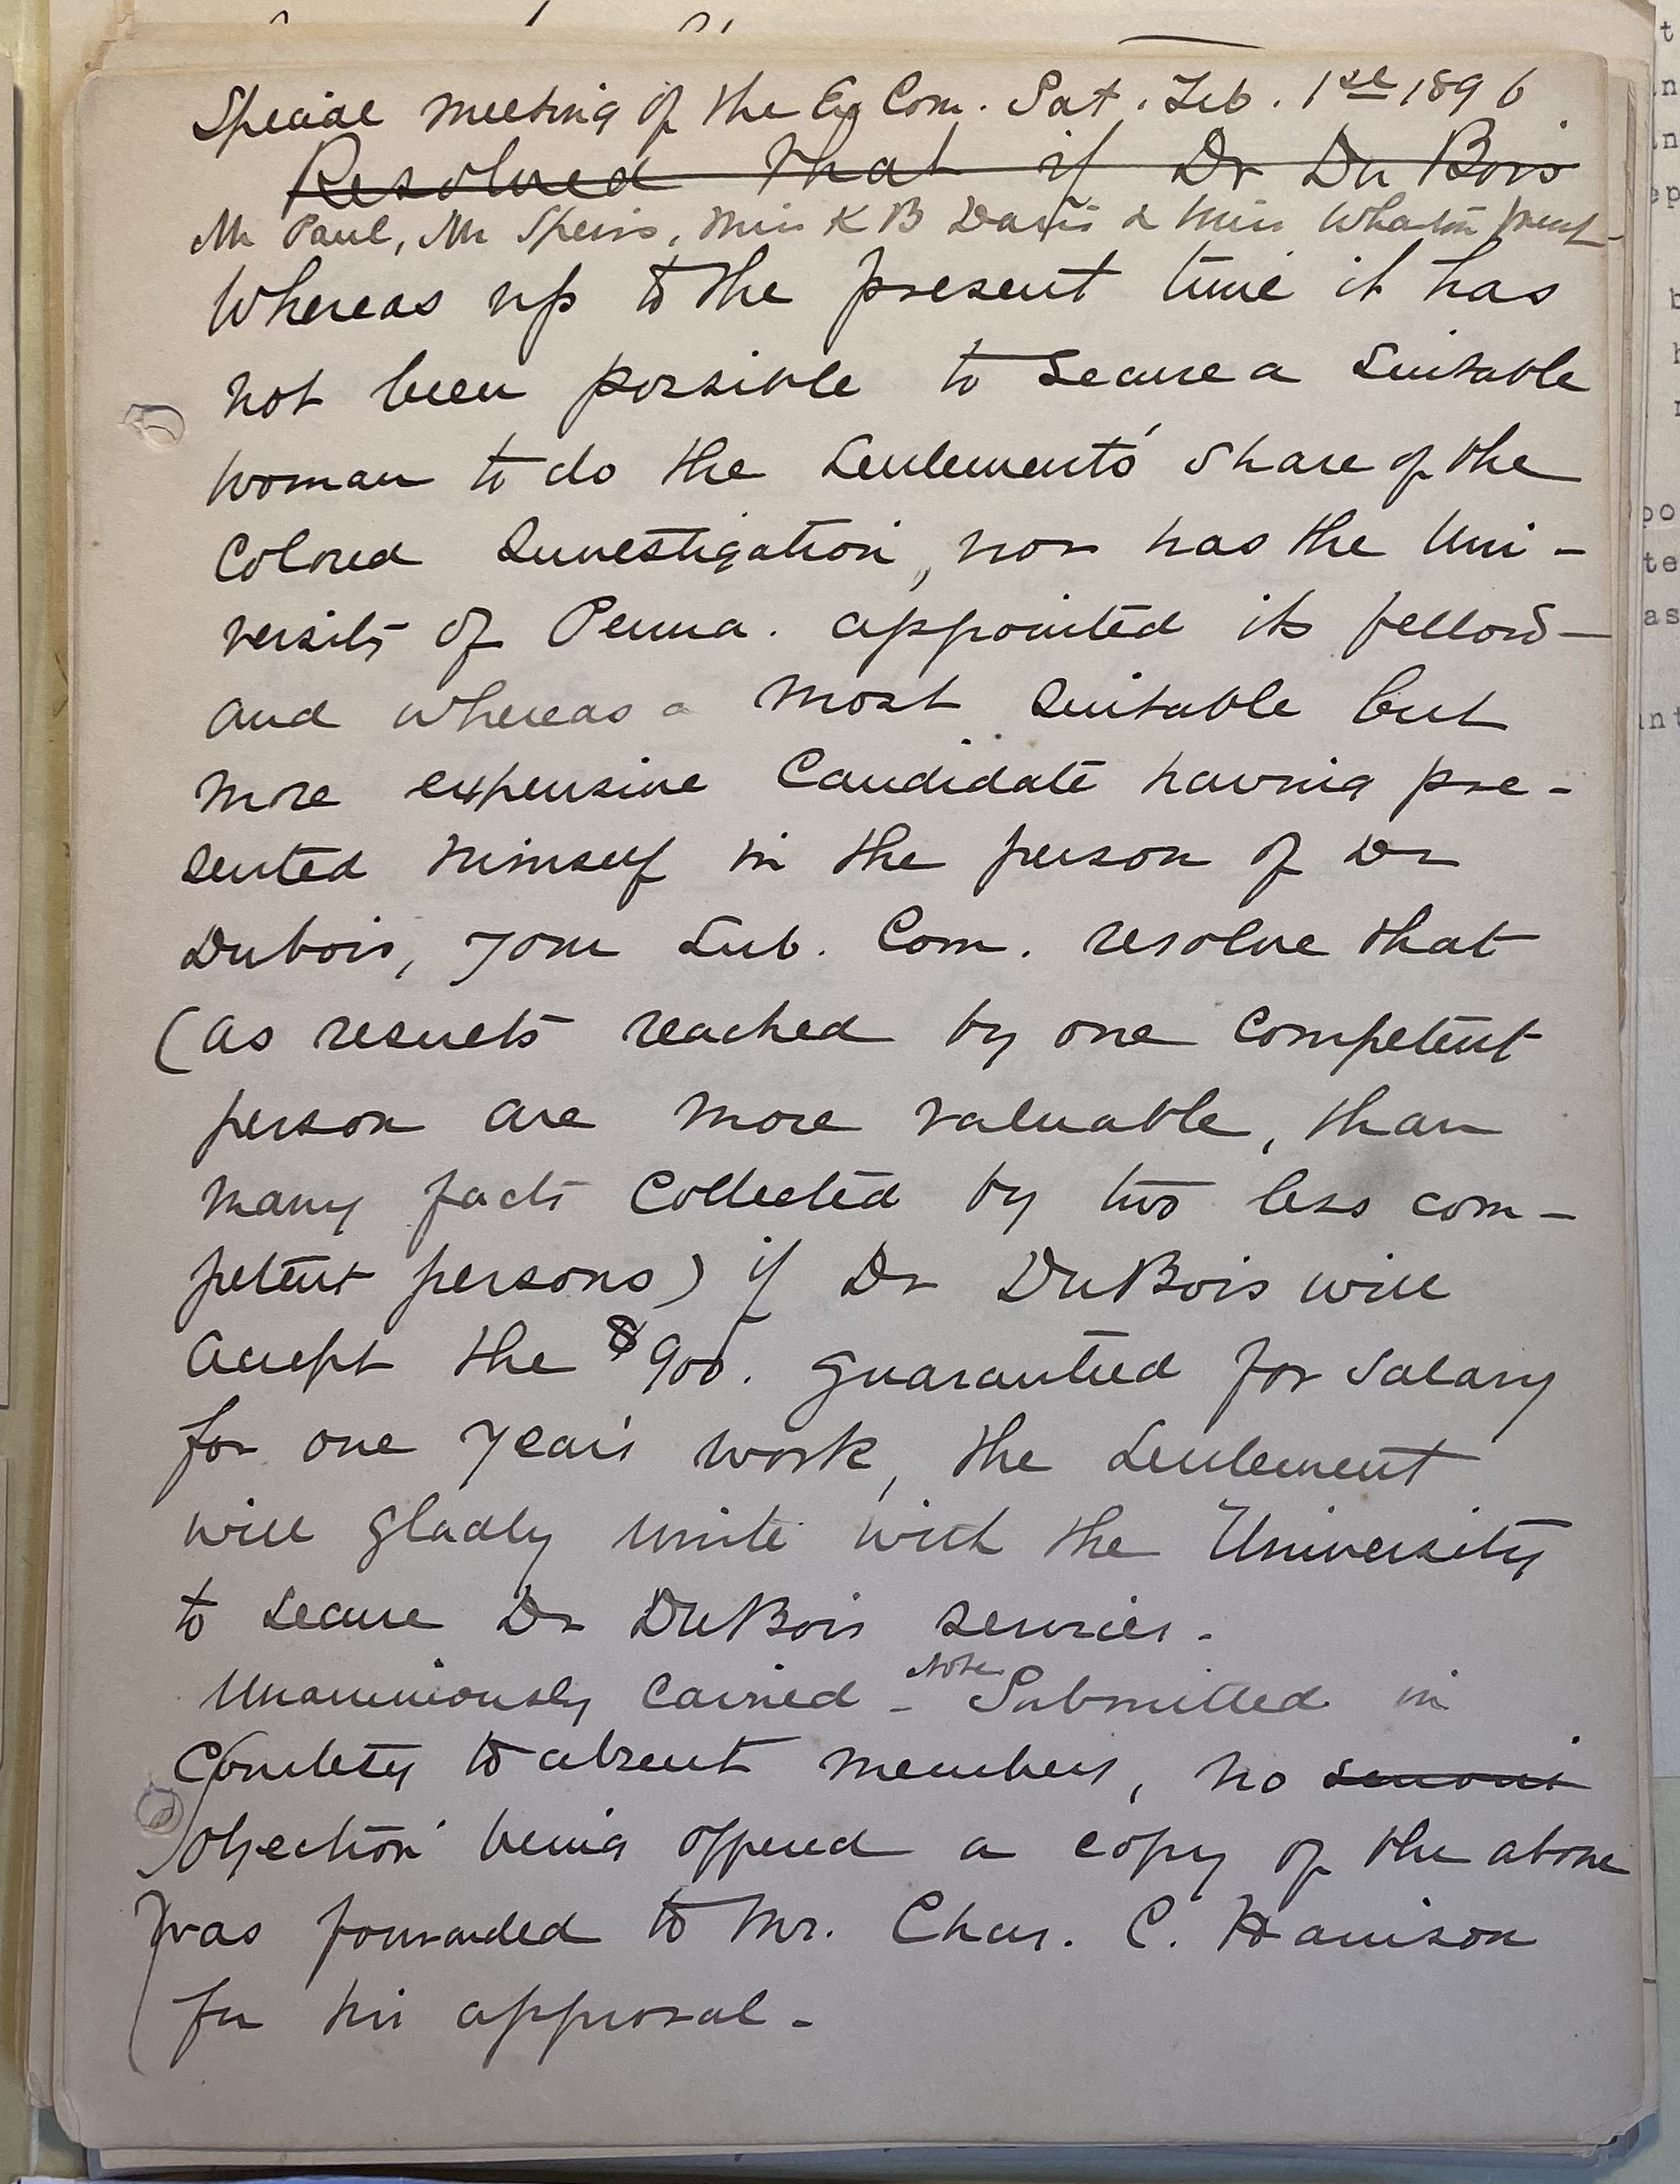 Special meeting of the Ex Com. Sat. Feb. 1st 1896
Resolved that if Dr Du Bois
Mr Paul, Mr Speirs, Miss K B Davis & Miss Wharton present
Whereas up to the present time it has
not been possible to secure a suitable
woman to do the Settlements' share of the
Colored Investigation, nor has the Uni-
versity of Penna. appointed its fellow—
and whereas a most suitable but
more expensive Candidate having pre-
sented himself in the person of Dr
Dubois, your Sub. Com. resolve that
(as results reached by one competent
person are more valuable, than
many facts collected by two less com-
petent persons) if Dr DuBois will
accept the $900. guaranteed for salary
for one year's work, the Settlement
will gladly unite with the University
to secure Dr DuBois services.
Unanimously carried - Note Submitted in
Courtesy to absent members, no serious
objection being offered a copy of the above
was forwarded to Mr. Chas. C. Harrison
for his approval.-